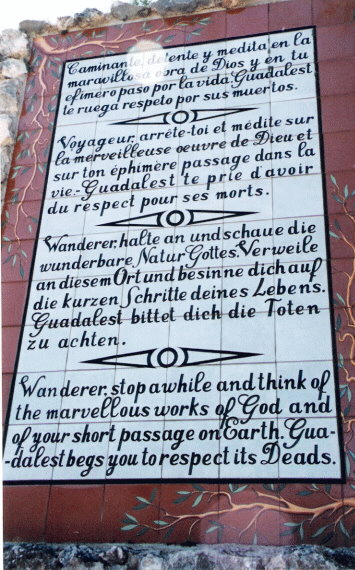 Caminante, detente y medita en la
maravillosa obra de Dios y en tu
efímero paso por la vida. Guadalest
te ruega respeto por sus muertos.
Voyageur, arrête-toi et médite sur
la merveilleuse oeuvre de Dieu et
sur ton éphimère passage dans la
vie.- Guadalest te prie d'avoir
du respect pour ses morts.
Wanderer, halte an und schaue die
wunderbare Natur Gottes. Verweile
an diesem Ort und besinne dich auf
die kurzen Schritte deines Lebens.
Guadalest bittet dich die Toten
zu achten.
Wanderer, stop a while and think of
the marvellous works of God and
of your short passage on Earth. Gua-
-dalest begs you to respect its Deads.